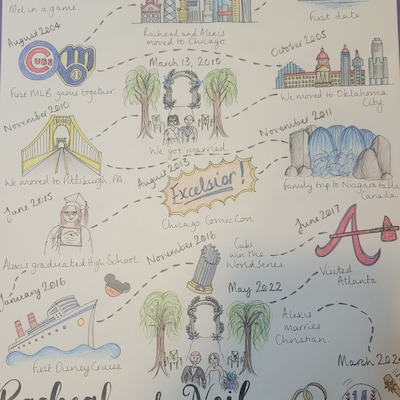 Met in a game.
Racheal and Alexis
moved to Chicago.
First date.
August 2004
CUBS
First MLB game together.
March 13, 2010
We got married.
October 2005
We moved to Oklahoma
City.
November 2010
We moved to Pittsburgh, PA
August 2013
Excelsior!
Chicago ComicCon
November 2011
Family trip to Niagara Falls
Canada
June 2015
Alexis graduated High School
November 2016
Cubs
win the
World Series.
June 2017
A
Visited
Atlanta
January 2016
First Disney Cruise
May 2022
Alexis
marries
Christian.
March 202
14
Racheal
Neil